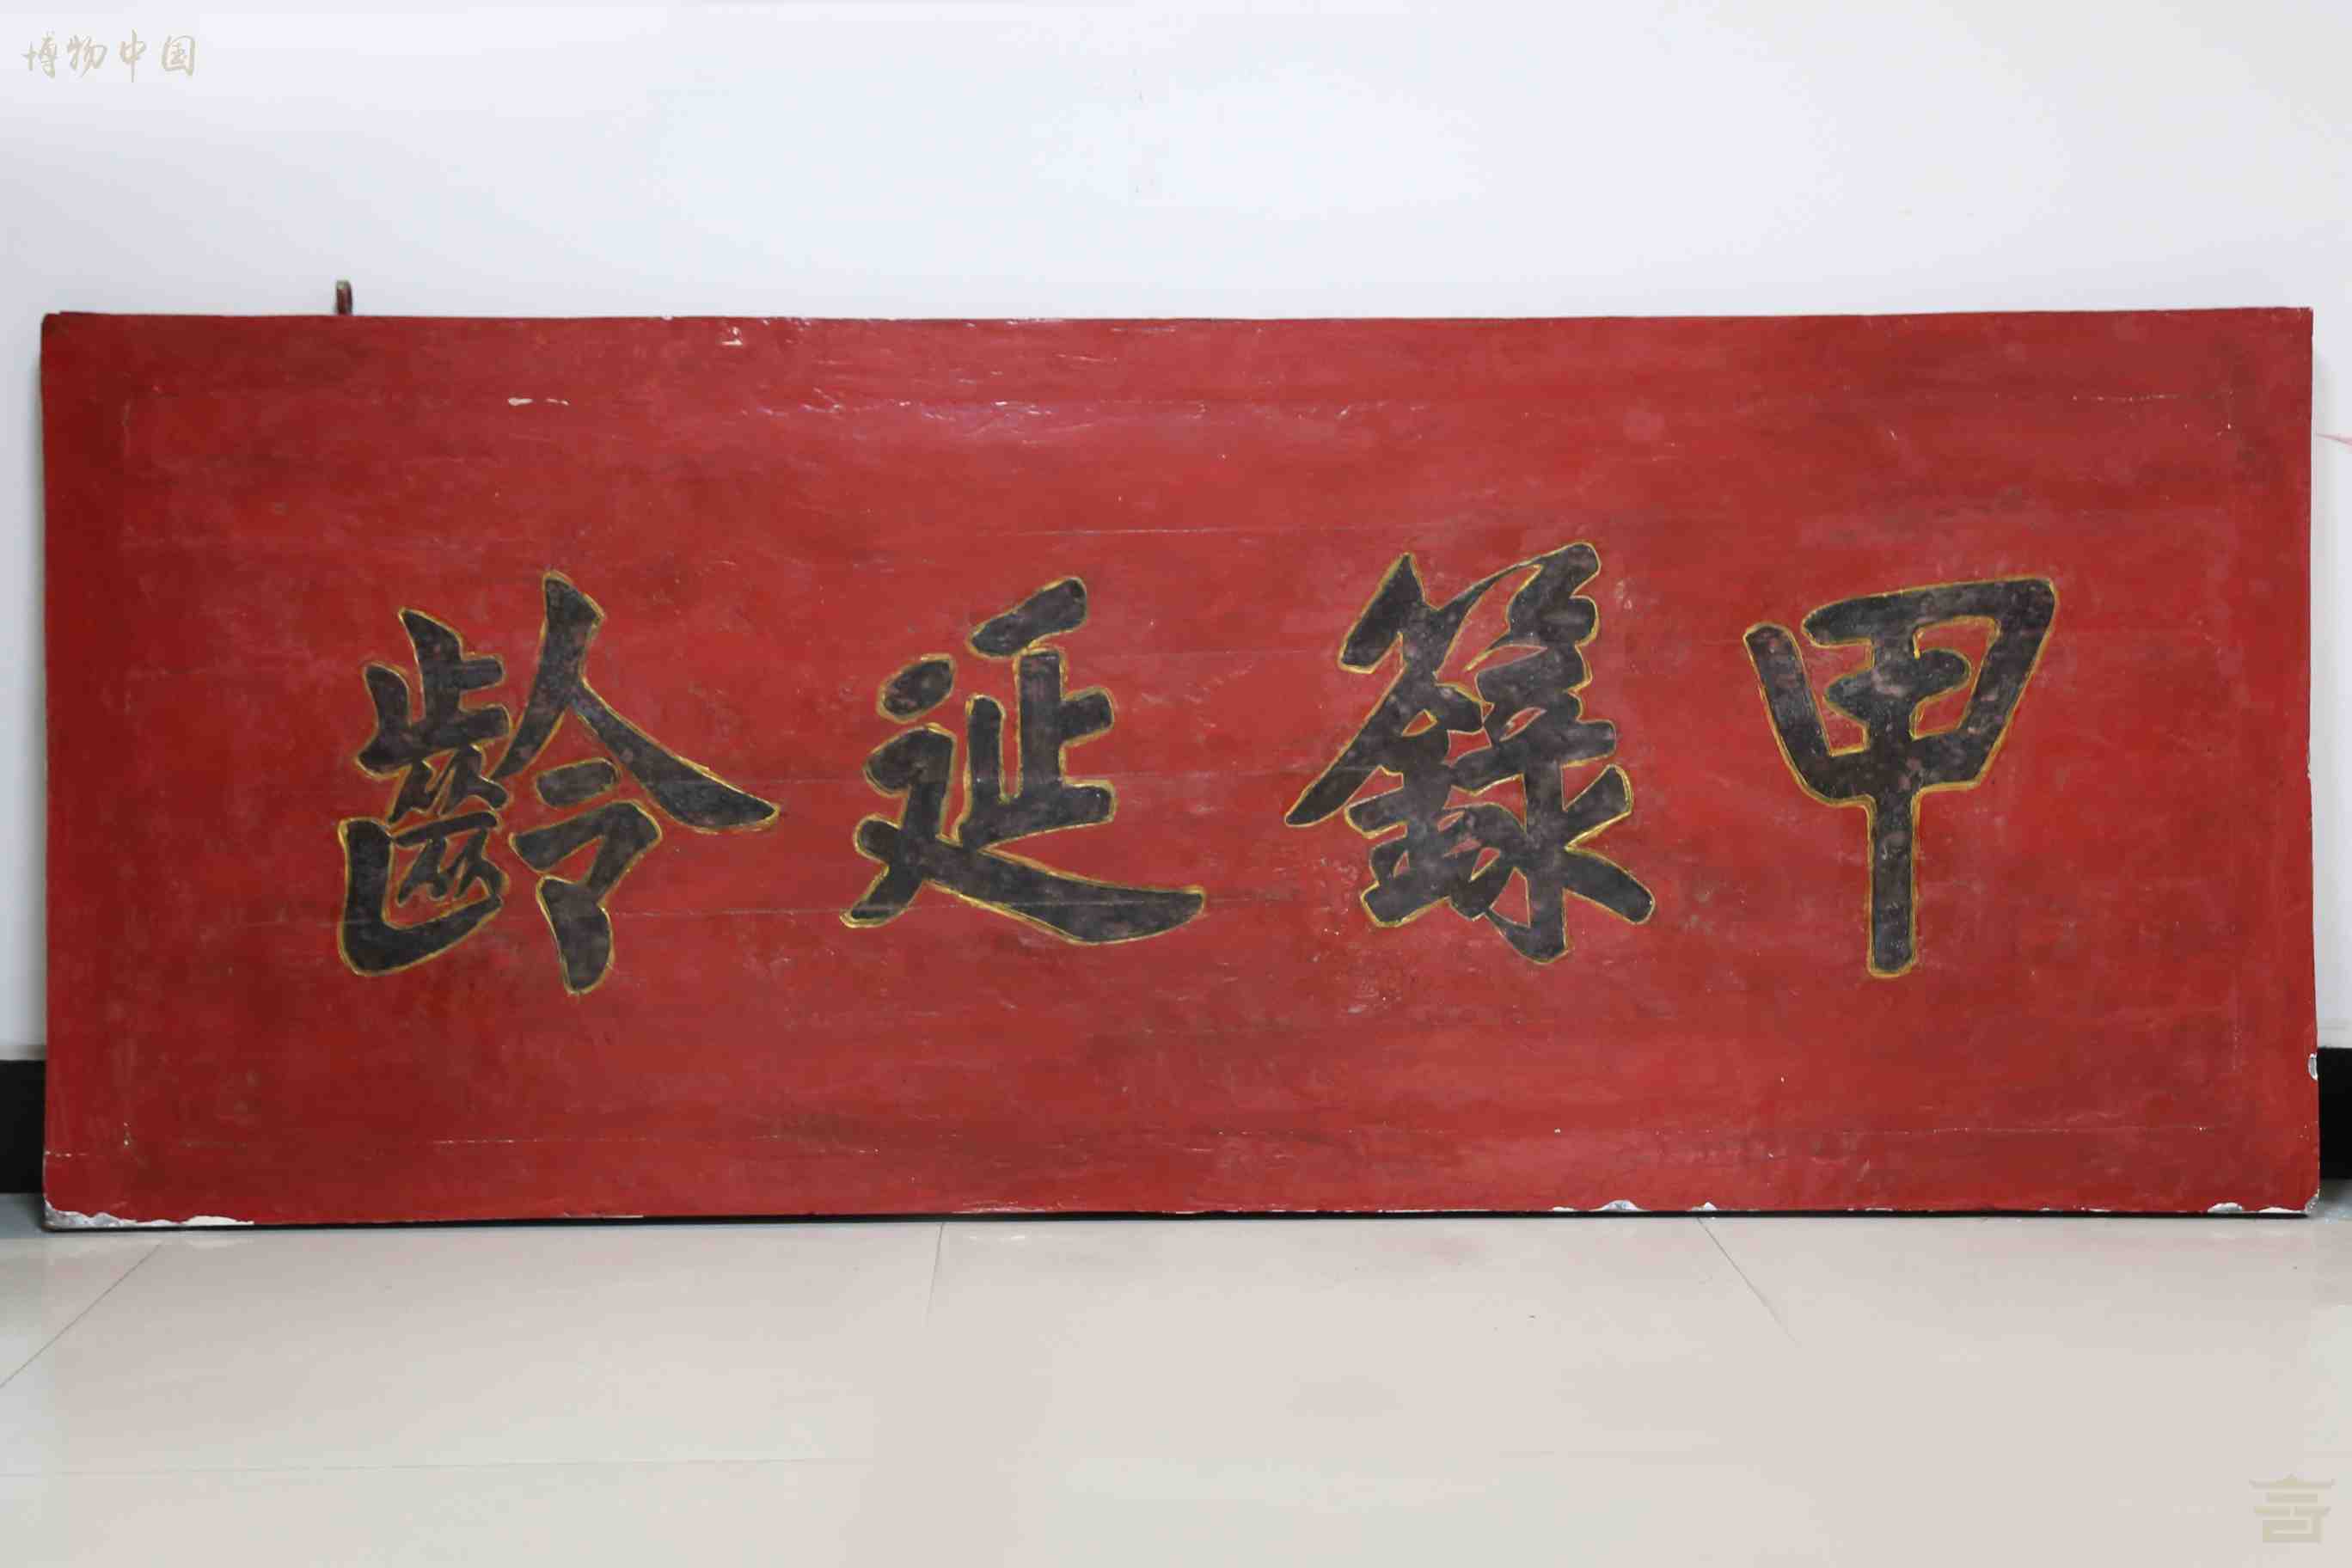 博物中国
甲籙延齡